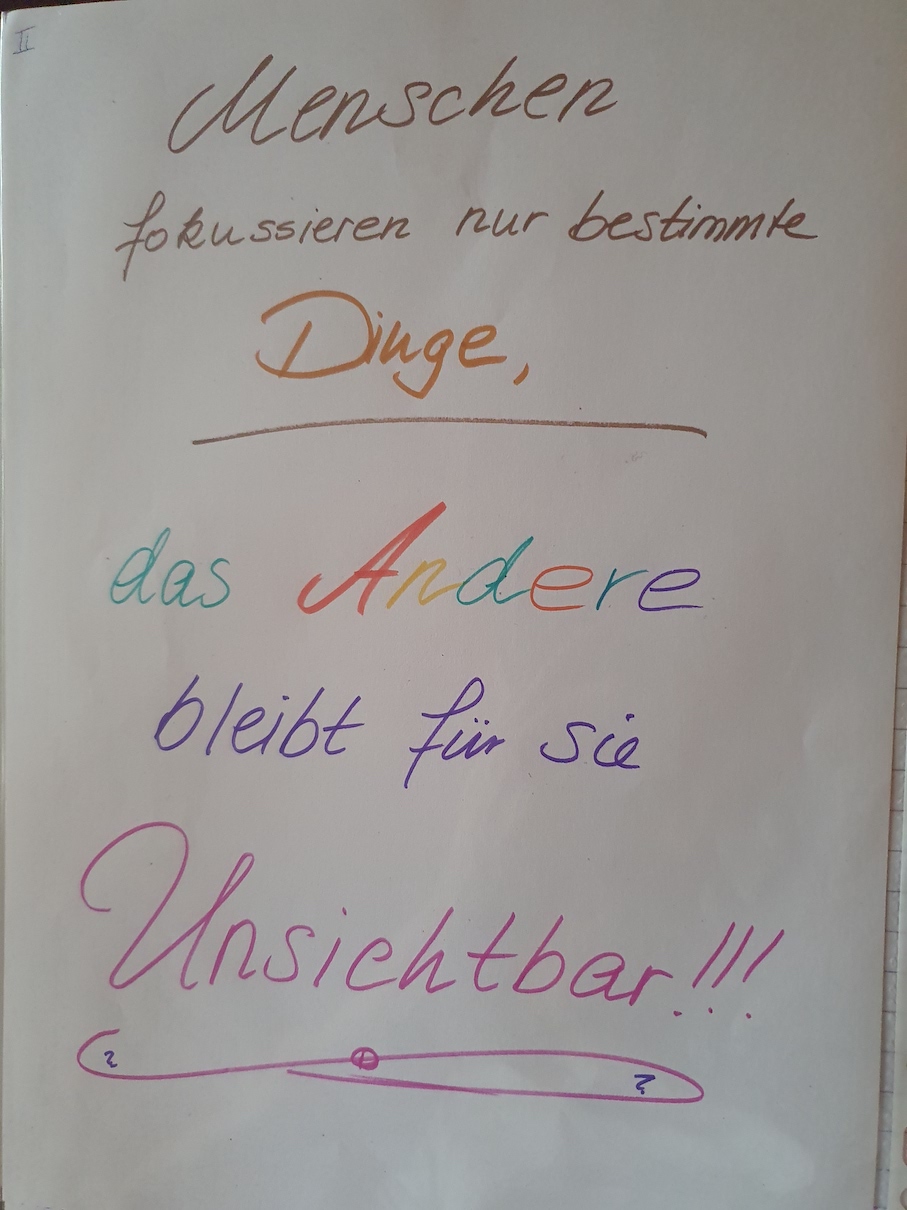 II
Menschen
fokussieren nur bestimmte
Dinge,
das Andere
bleibt für sie
Unsichtbar!!!